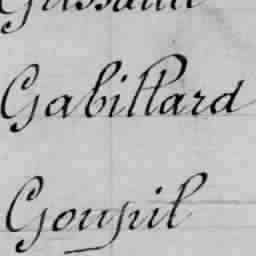 Gabillard
Goupil